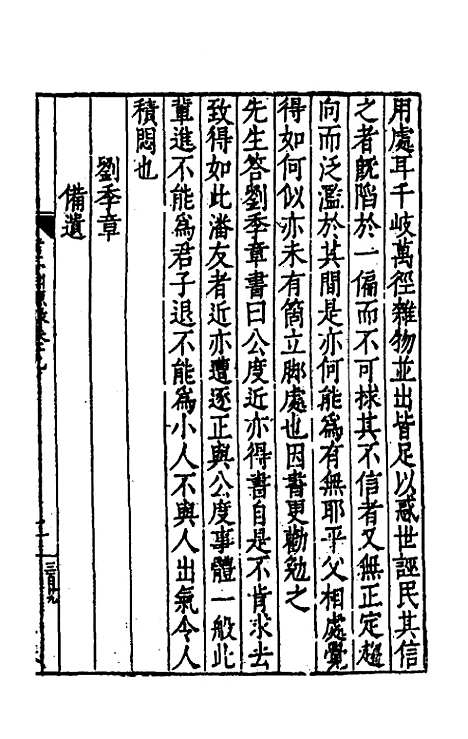 用處耳千岐萬徑雜物並出皆足以惑世誣民其信
之者旣陷於一偏而不可捄其不信者又無正定趨
向而泛濫於其間是亦何能爲有無耶平父相處覺
得如何似亦未有箇立脚處也因書更勸勉之
先生答劉季章書曰公度近亦得書自是不肯求去
致得如此潘友者近亦遭逐正與公度事體一般此
輩進不能爲君子退不能爲小人不與人出氣令人
積悶也
劉季章
備遺